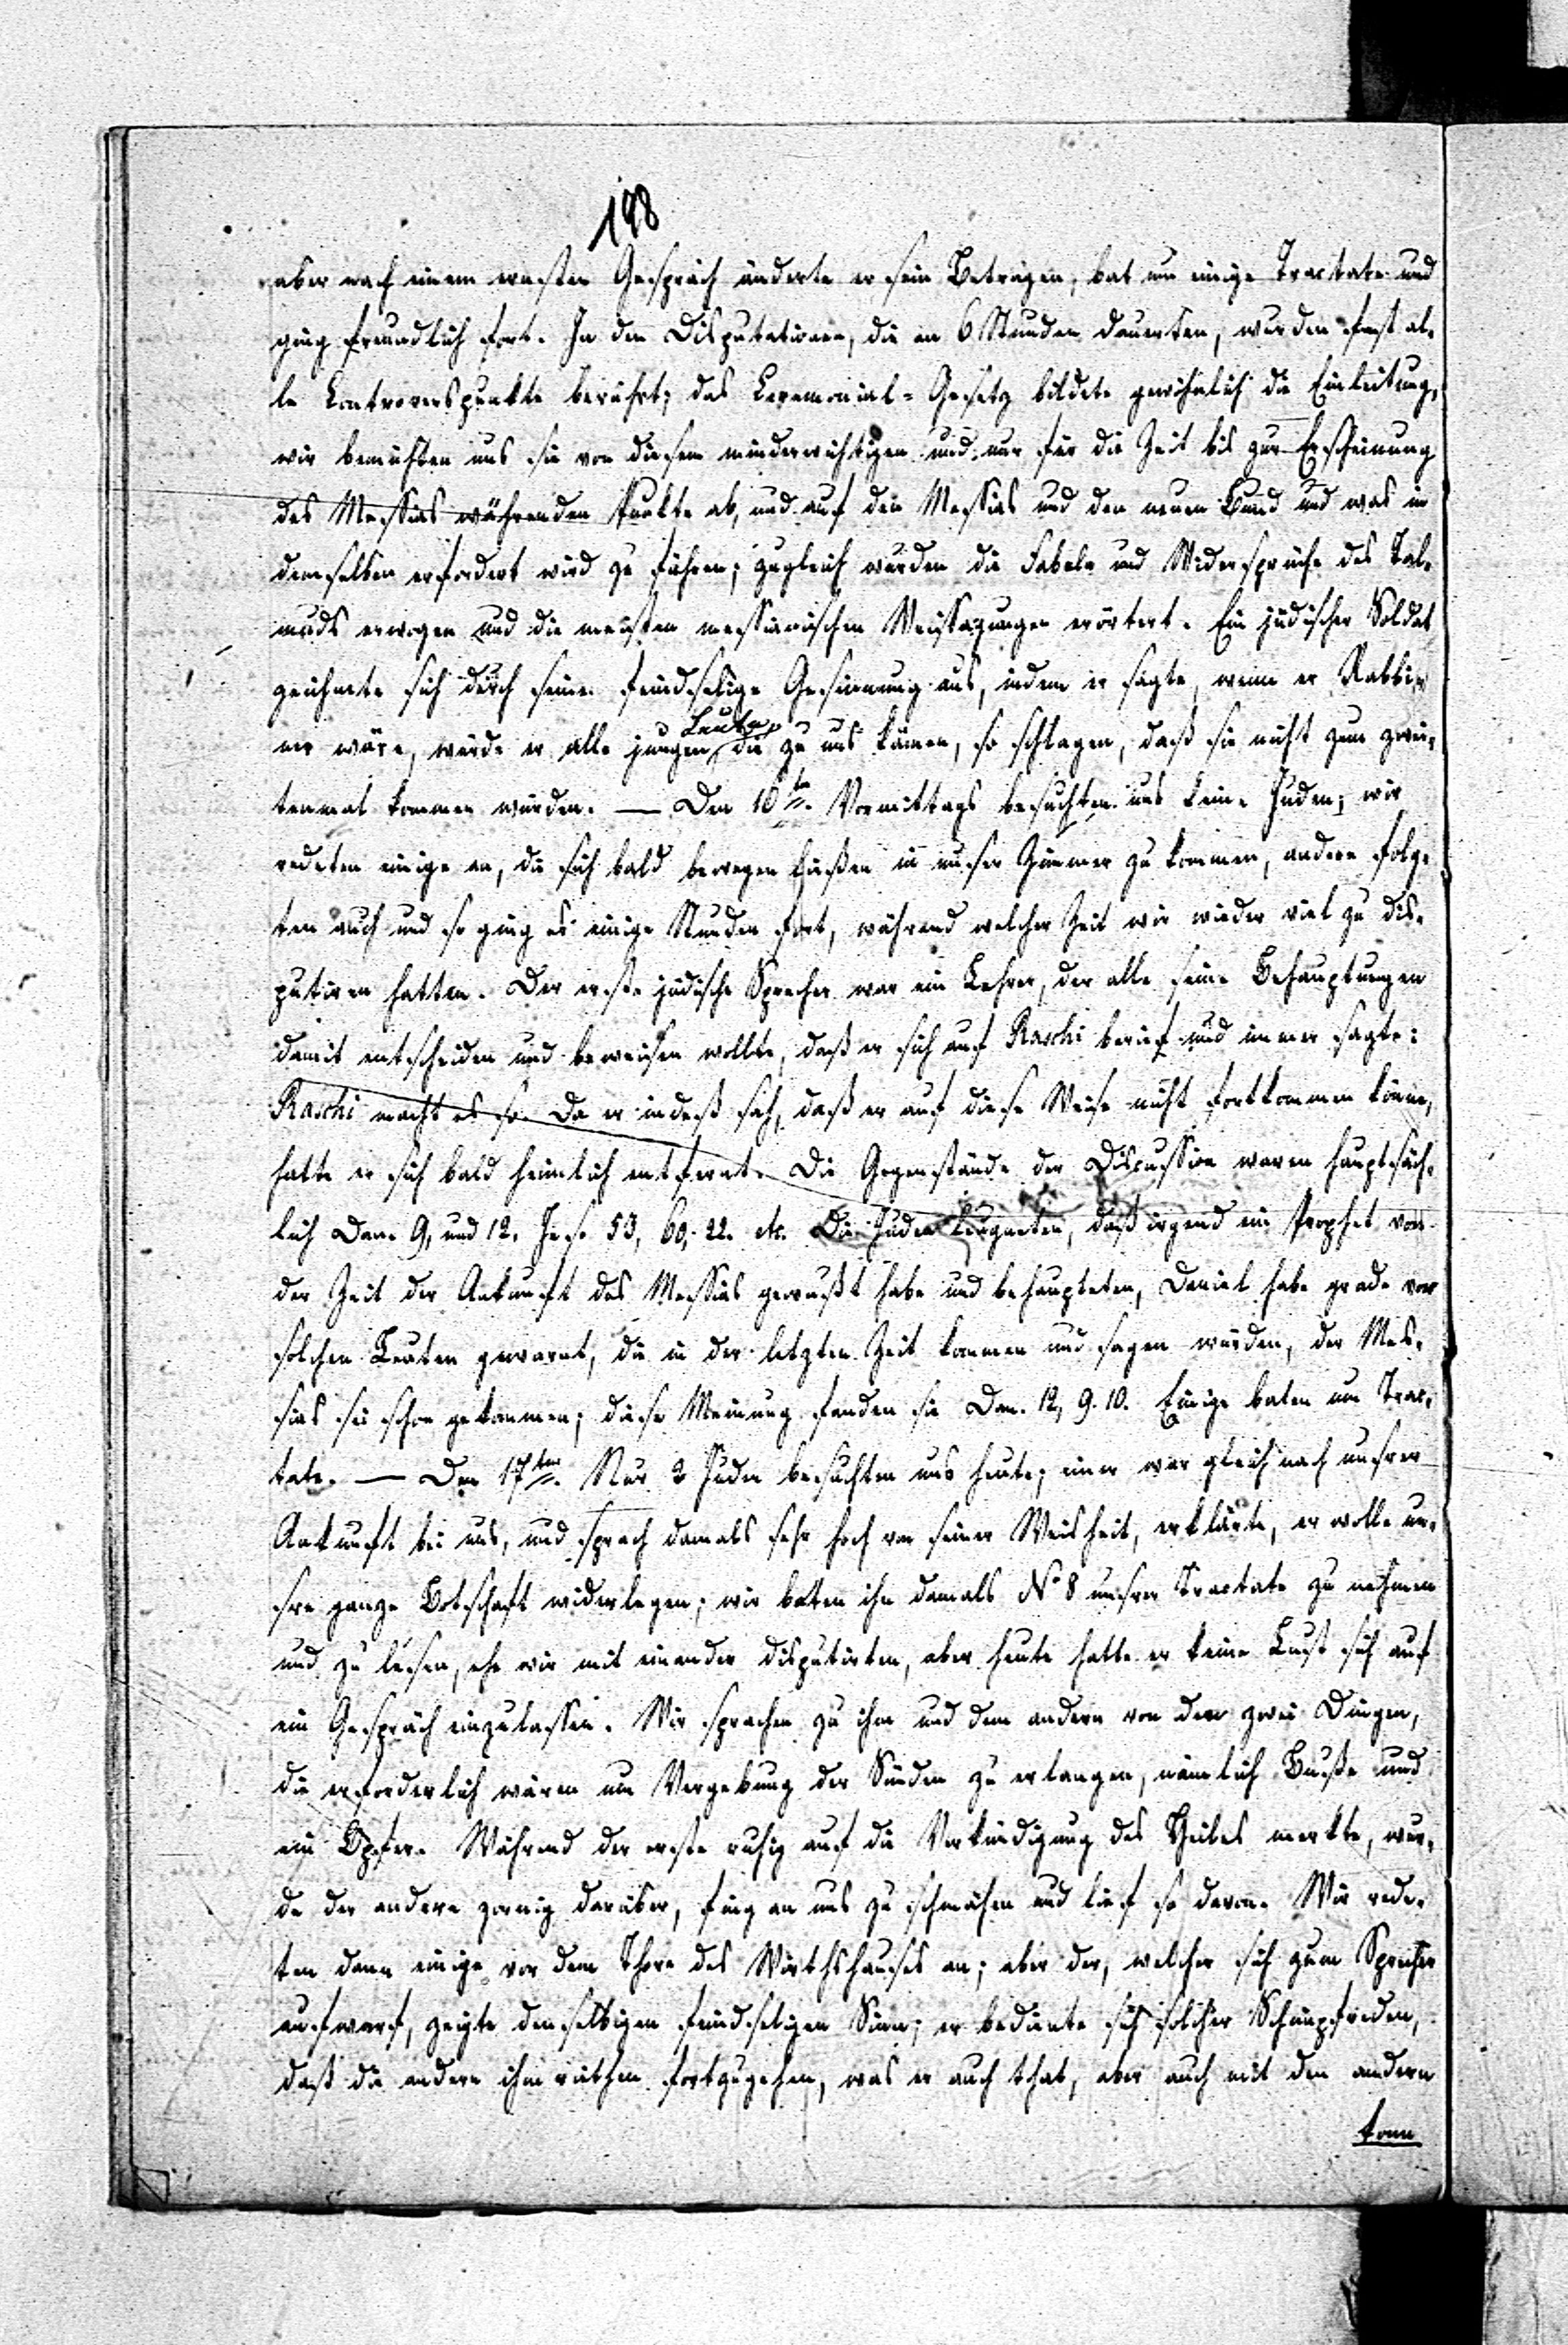 198
aber nach einem ernsten Gespräch änderte er sein Betragen, bat um einige Tractate und
ging freundlich fort. In den Disputationen, die an 6 Stunden dauerten, wurden fast al-
le Controverspunkte berührt; das Ceremonial-Gesetz bildete gewöhnlich die Einleitung,
wir bemühten uns sie von diesem minderwichtigen und nur für die Zeit bis zur Erscheinung
des Messias währenden Punkte ab, und auf den Messias und den neuen Bund und was in
demselben erfordert wird zu führen; zugleich wurden die Fabeln und Widersprüche des Tal-
muds erwogen und die meisten messianischen Weissagungen erörtert. Ein jüdischer Soldat
zeichnete sich durch seine feindselige Gesinnung aus, indem er sagte, wenn er Rabbi-
ner wäre, würde er alle jungen Leute, die zu uns kämen, so schlagen, daß sie nicht zum zwei-
tenmal kommen würden. — Den 16ten. Vormittags besuchten uns keine Juden; wir
redeten einige an, die sich bald bewegen ließen in unser Zimmer zu kommen, andere folg-
ten auch und so ging es einige Stunden fort, während welcher Zeit wir wieder viel zu dis-
putiren hatten. Der erste jüdische Sprecher war ein Lehrer, der alle seine Behauptungen
damit entscheiden und beweisen wollte, daß er sich auf Raschi berief und immer sagte:
Raschi macht es so. Da er indeß sah, daß er auf diese Weise nicht fortkommen könne,
hatte er sich bald heimlich entfernt. Die Gegenstände der Discussion waren hauptsäch-
lich Dan. 9, und 12. Jes. 53, 60, 22. etc. Die Juden leugneten, daß irgend ein Prophet von
der Zeit der Ankunft des Messias gewußt habe und behaupteten, Daniel habe grade vor
solchen Leuten gewarnt, die in der letzten Zeit kommen und sagen würden, der Mes-
sias sei schon gekommen; diese Meinung fanden sie Dan. 12, 9. 10. Einige baten um Trac-
tate. — Den 17ten. Nur 2 Juden besuchten uns heute; einer war gleich nach unsrer
Ankunft bei uns, und sprach damals sehr hoch von seiner Weisheit, erklärte, er wolle un-
sre ganze Botschaft widerlegen; wir baten ihn damals No 8 unsrer Tractate zu nehmen
und zu lesen, ehe wir mit einander disputirten, aber heute hatte er keine Lust sich auf
ein Gespräch einzulassen. Wir sprachen zu ihm und dem andern von den zwei Dingen,
die erforderlich wären um Vergebung der Sünden zu erlangen, nämlich Buße und
ein Opfer. Während der erste ruhig auf die Verkündigung des Heiles merkte, wur-
de der andere zornig darüber, fing an uns zu schmähen und lief so davon. Wir rede-
ten dann einige vor dem Thore des Wirthshauses an; aber der, welcher sich zum Sprecher
aufwarf, zeigte denselbigen feindseligen Sinn; er bediente sich solcher Schimpfreden,
daß die andern ihm riethen fortzugehen, was er auch that, aber auch mit den andern
konn